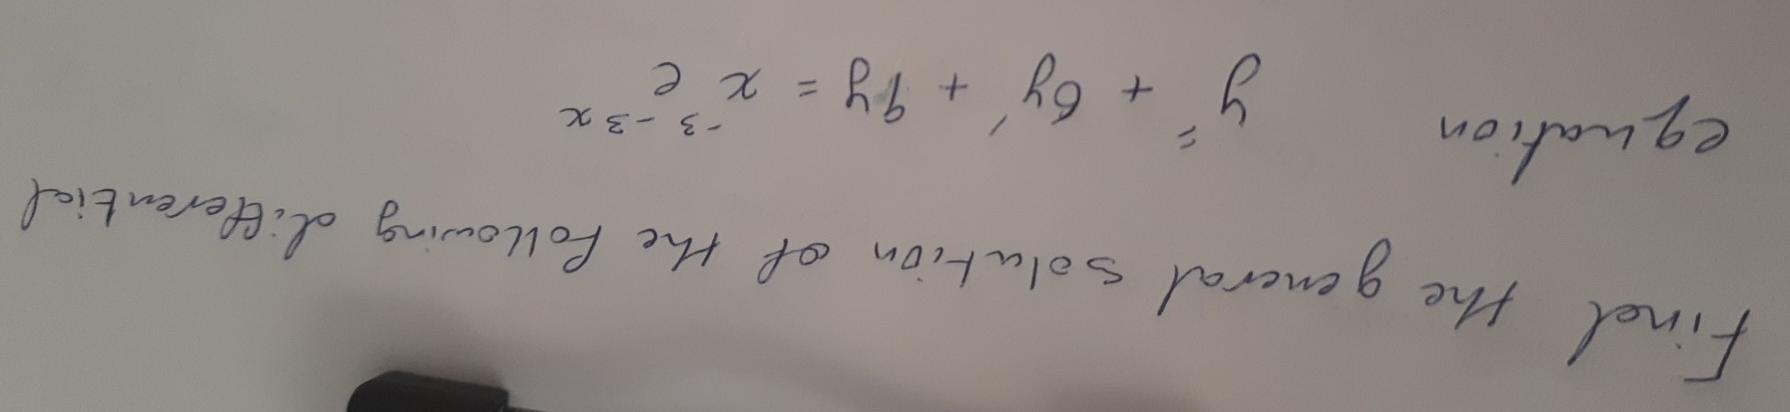 Find the general solution of the following differential
equation y″ + 6y′ + 9y = x⁻³ e⁻³ˣ